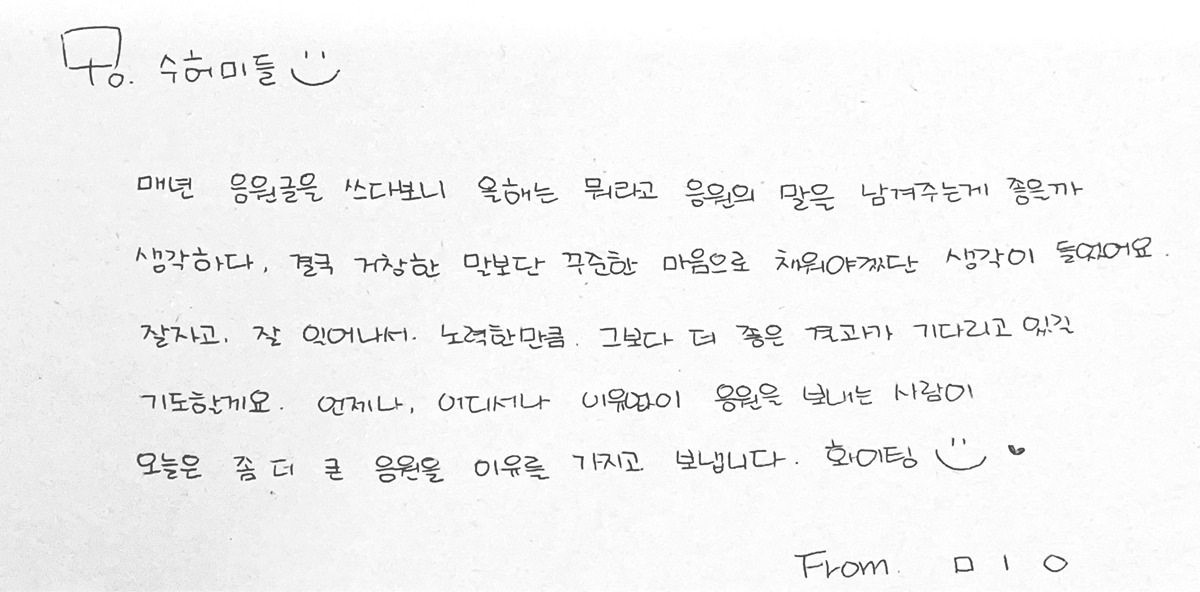 To. 수험미들
매년 응원글을 쓰다보니 올해는 뭐라고 응원의 말을 남겨주는게 좋을까
생각하다, 결국 거창한 말보단 꾸준한 마음으로 채워야겠단 생각이 들었어요.
잘자고, 잘 일어나서. 노력한만큼. 그보다 더 좋은 결과가 기다리고 있길
기도할게요. 언제나, 어디서나 이유없이 응원을 보내는 사람이
오늘은 좀 더 큰 응원을 이유를 가지고 보냅니다. 화이팅
From. ㅁㅣㅇ